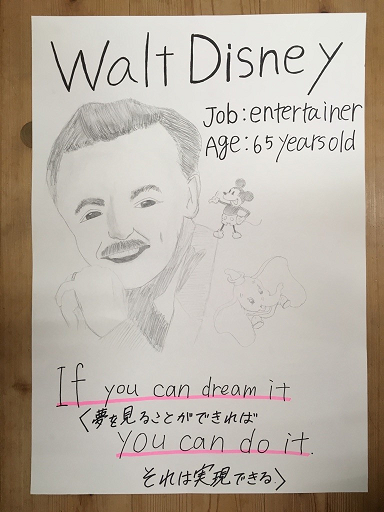 Walt Disney
Job:entertainer
Age:65 years old
If you can dream it
〈夢を見ることができれば
you can do it.
それは実現できる〉